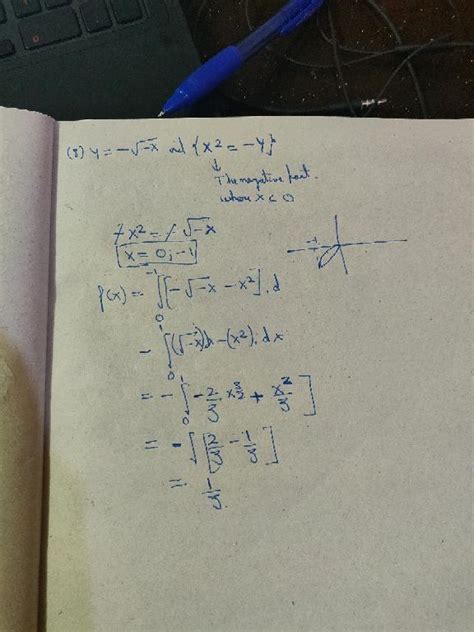 (8) y = -√-x and {x² = -y}
↓
The negative part.
where x < 0
-x² = -√-x
x = 0, -1
-1
f(x) = ∫₀⁻¹ [-√-x - x²] . d
- ∫₀⁻¹ (√-x)dx - (x²). dx
= - ∫₀⁻¹ -2/3 x^3/2 + x²/3 ]
= - [ 2/3 - 1/3 ]
= 1/3